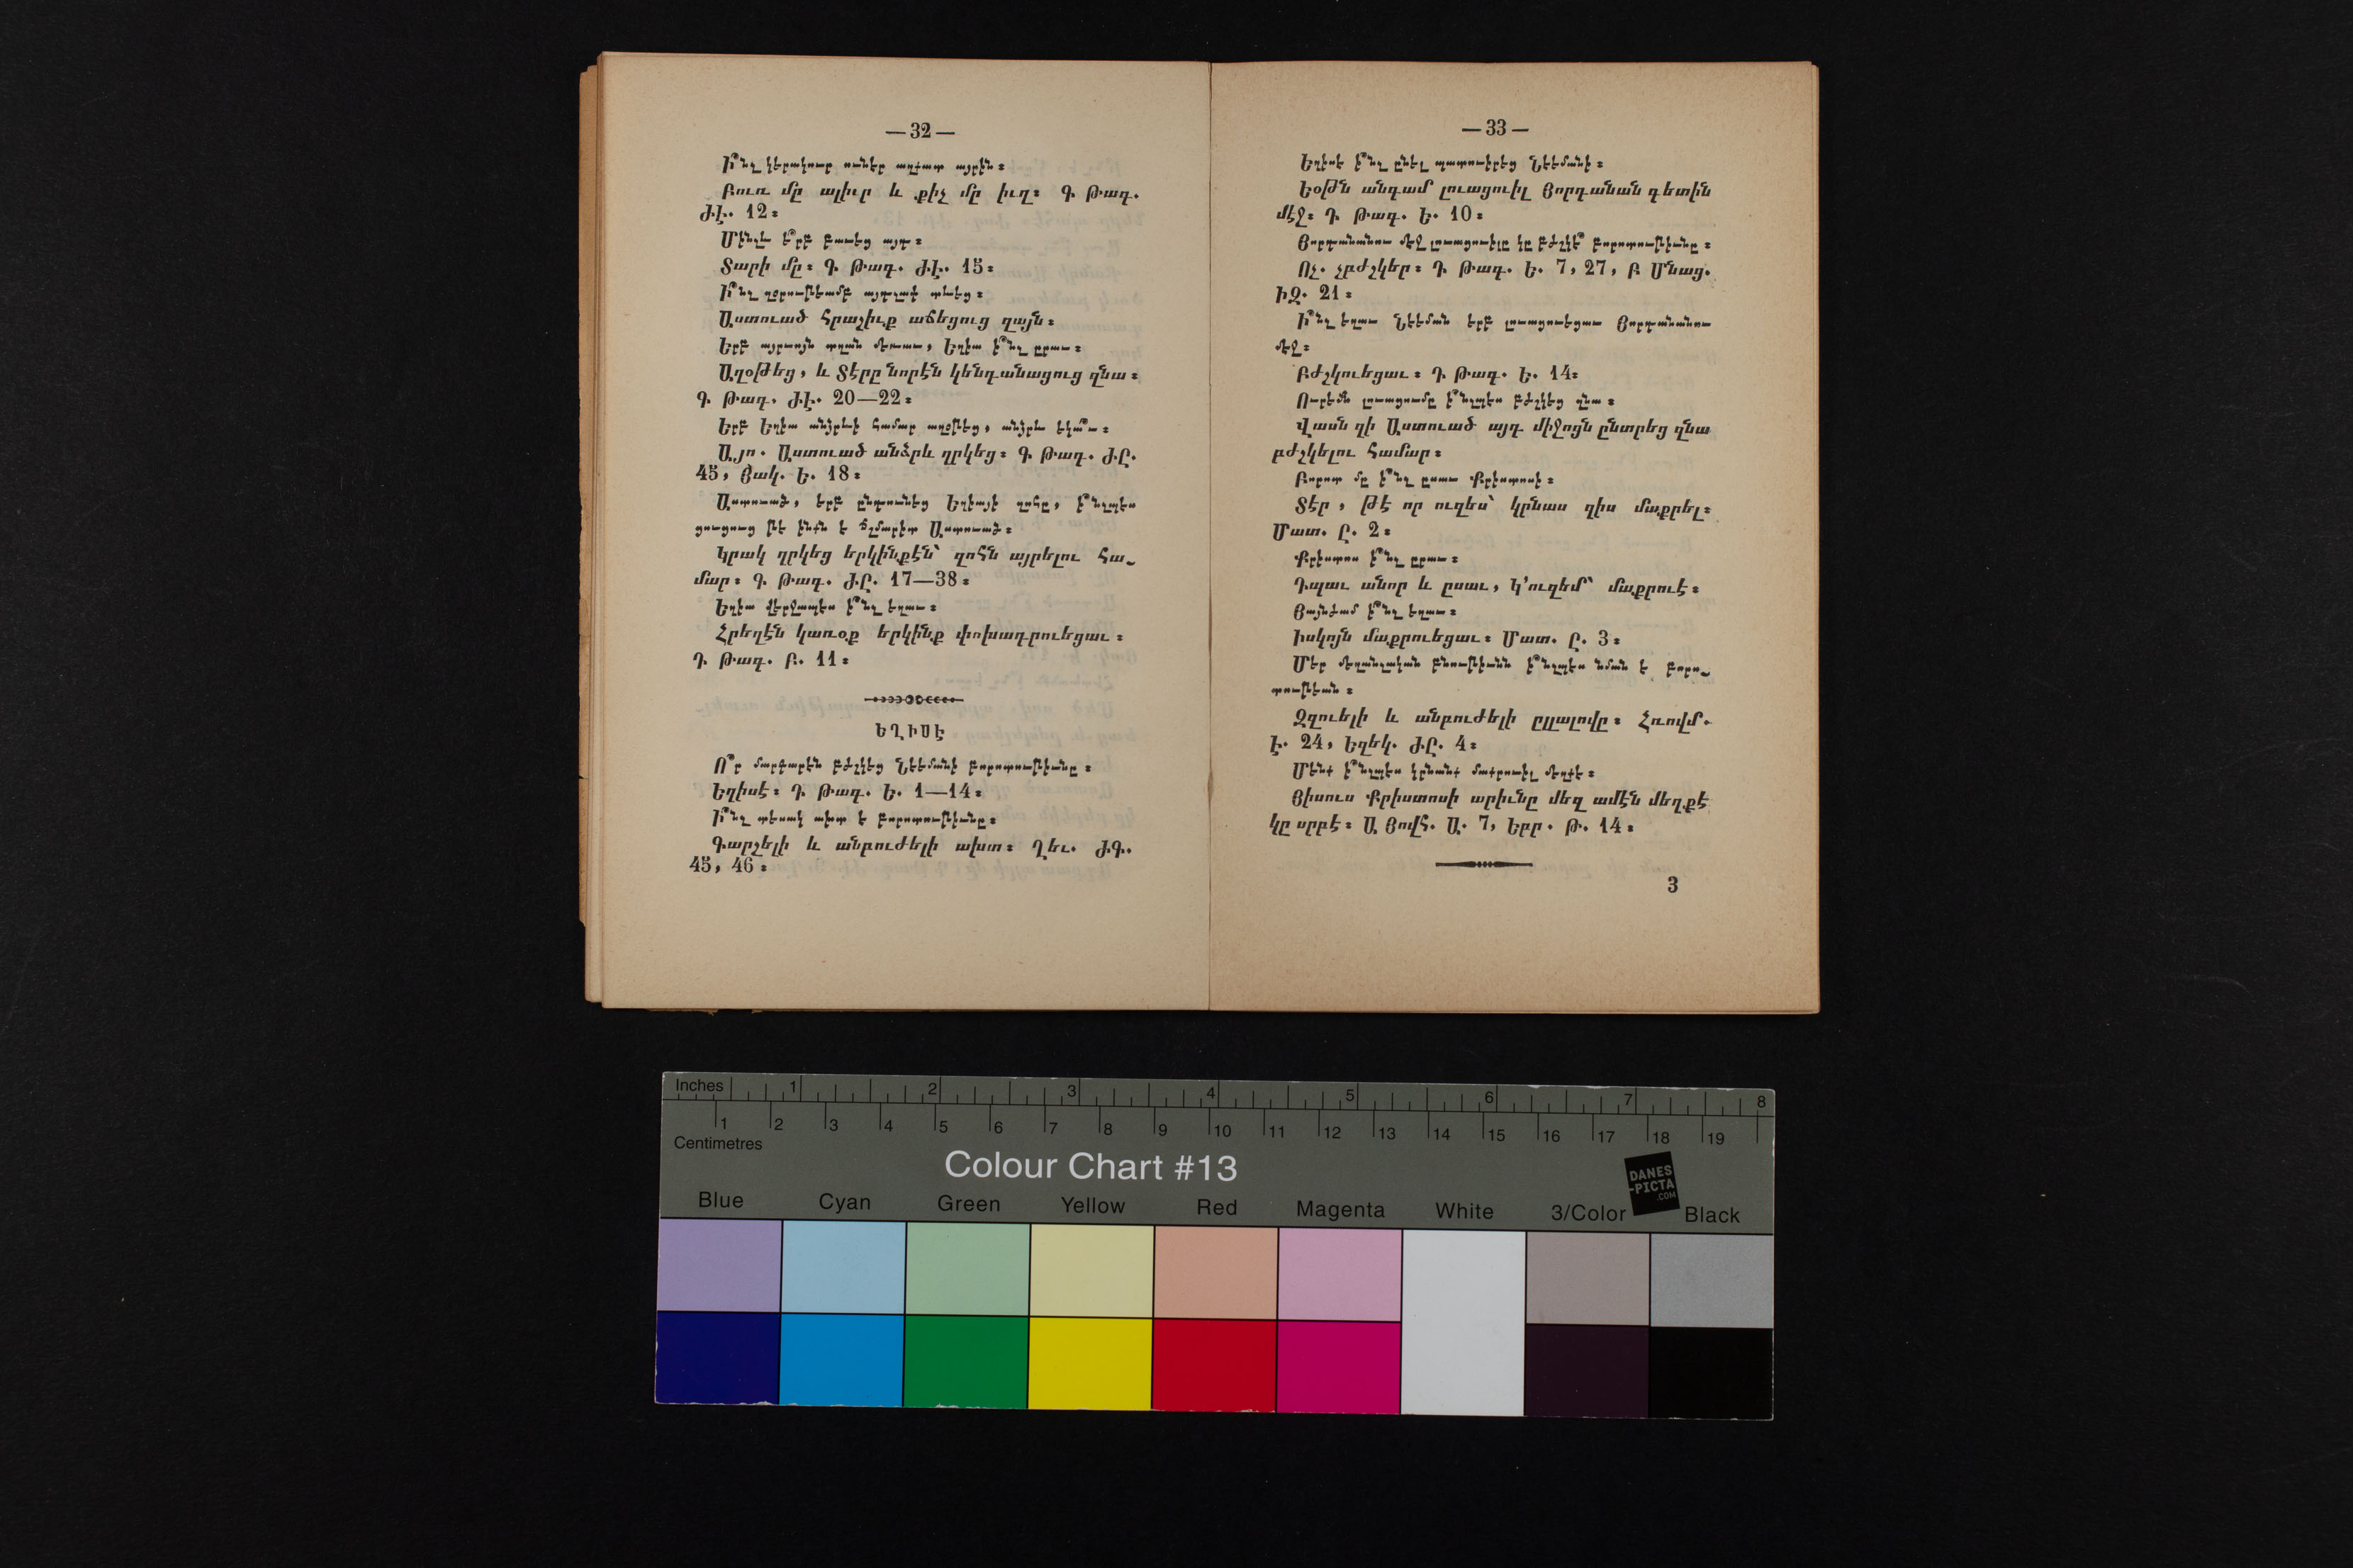 — 32 —
Ի՞նչ կերակուր ունէր աղքատ այրին։
Բուռ մը ալիւր և քիչ մը իւղ։ Գ. Թագ.
ԺԷ. 12։
Մինչև ե՞րբ բաւեց այդ։
Տարի մը։ Գ. Թագ. ԺԷ. 15։
Ի՞նչ զօրութեամբ այդչափ տևեց։
Աստուած հրաշիւք աճեցուց զայն։
Երբ այրւոյն տղան մեռաւ, Եղիա ի՞նչ ըրաւ։
Աղօթեց, և Տէրը նորէն կենդանացուց զնա։
Գ. Թագ. ԺԷ. 20—22։
Երբ Եղիա անձրևի համար աղօթեց, անձրև եկա՞ւ։
Այո. Աստուած անձրև ղրկեց։ Գ. Թագ. ԺԸ.
45, Յակ. Ե. 18։
Աստուած, երբ ընդունեց Եղիայի զոհը, ի՞նչպէս
ցուցուց թէ ինքն է ճշմարիտ Աստուած։
Կրակ ղրկեց երկինքէն՝ զոհն այրելու հա-
մար։ Գ. Թագ. ԺԸ. 17—38։
Եղիա վերջապէս ի՞նչ եղաւ։
Հրեղէն կառօք երկինք փոխադրուեցաւ։
Դ. Թագ. Բ. 11։
ԵՂԻՍԷ
Ո՞ր մարգարէն բժշկեց Նեեմանի բորոտութիւնը։
Եղիսէ։ Դ. Թագ. Ե. 1—14։
Ի՞նչ տեսակ ախտ է բորոտութիւնը։
Գարշելի և անբուժելի ախտ։ Ղեւ. ԺԳ.
45, 46։
— 33 —
Եղիսէ ի՞նչ ընել պատուիրեց Նեեմանի։
Եօթն անգամ լուացուիլ Յորդանան գետին
մէջ։ Դ. Թագ. Ե. 10։
Յորդանանու մէջ լուացուիլը կը բժշկէ՞ բորոտութիւնը։
Ոչ. չբժշկեր։ Դ. Թագ. Ե. 7, 27, Բ Մնաց.
ԻԶ. 21։
Ի՞նչ եղաւ Նեեման երբ լուացուեցաւ Յորդանանու
մէջ։
Բժշկուեցաւ։ Դ. Թագ. Ե. 14։
Ուրեմն լուացումը ի՞նչպէս բժշկեց զնա։
Վասն զի Աստուած այդ միջոցն ընտրեց զնա
բժշկելու համար։
Բորոտ մը ի՞նչ ըսաւ Քրիստոսի։
Տէր, թէ որ ուզես՝ կրնաս զիս մաքրել։
Մատ. Ը. 2։
Քրիստոս ի՞նչ ըրաւ։
Դպաւ անոր և ըսաւ, Կ՚ուզեմ՝ մաքրուէ։
Յայնժամ ի՞նչ եղաւ։
Իսկոյն մաքրուեցաւ։ Մատ. Ը. 3։
Մեր մեղանչական բնութիւնն ի՞նչպէս նման է բորո-
տութեան։
Զզուելի և անբուժելի ըլլալովը։ Հռովմ.
Է. 24, Եզեկ. ԺԸ. 4։
Մենք ի՞նչպէս կրնանք մաքրուիլ մեղքէ։
Յիսուս Քրիստոսի արիւնը մեզ ամէն մեղքէ
կը սրբէ։ Ա Յովհ. Ա. 7, Եբր. Թ. 14։
3
Inches 1 2 3 4 5 6 7 8
1 2 3 4 5 6 7 8 9 10 11 12 13 14 15 16 17 18 19
Centimetres
Colour Chart #13
DANES
-PICTA
.COM
Blue Cyan Green Yellow Red Magenta White 3/Color Black